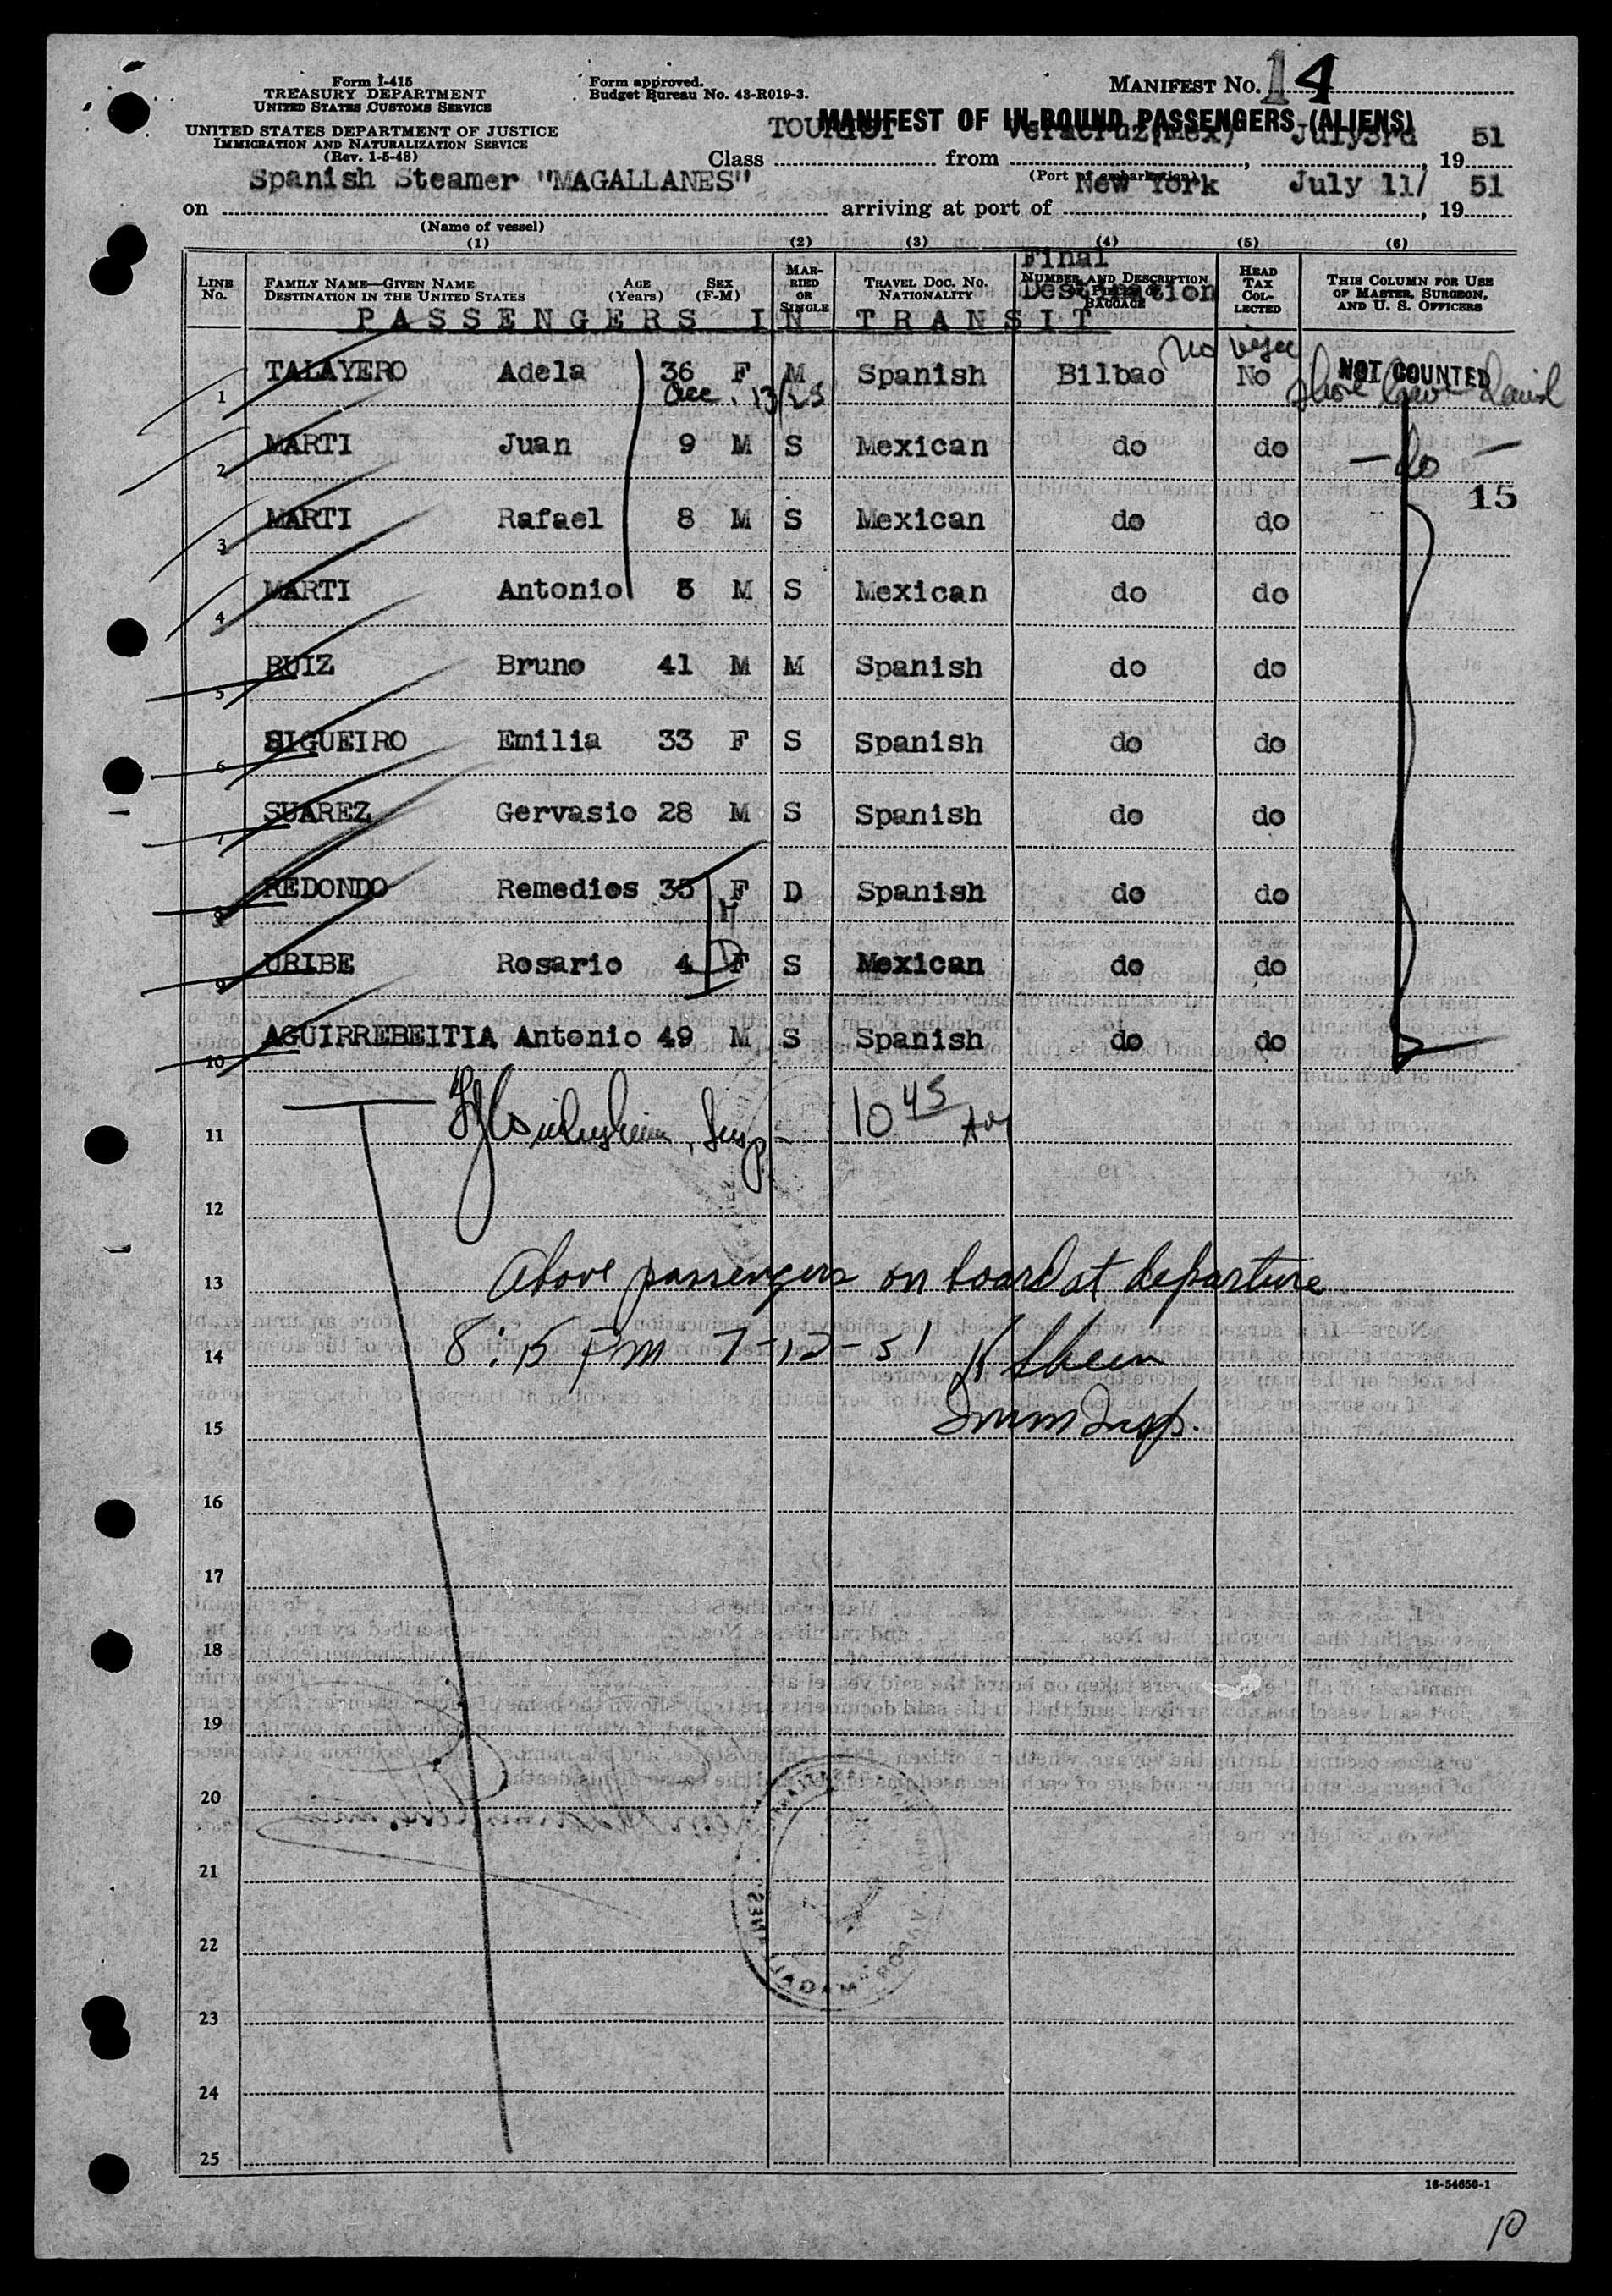 Form I-415
TREASURY DEPARTMENT
UNITED STATES CUSTOMS SERVICE
Form approved.
Budget Bureau No. 43-R019-3.
MANIFEST No. 14
UNITED STATES DEPARTMENT OF JUSTICE
IMMIGRATION AND NATURALIZATION SERVICE
(Rev. 1-5-48)
MANIFEST OF IN-BOUND PASSENGERS (ALIENS)
Class TOURIST from Veracruz(Mex), July3rd, 19 51
(Port of embarkation)
on Spanish Steamer "MAGALLANES" arriving at port of New York July 11/, 19 51
(Name of vessel)
(1) (2) (3) (4) (5) (6)
LINE No. FAMILY NAME—GIVEN NAME DESTINATION IN THE UNITED STATES AGE (Years) SEX (F-M) MARRIED OR SINGLE TRAVEL DOC. NO. NATIONALITY NUMBER AND DESCRIPTION OF PIECES OF BAGGAGE Final Destination HEAD TAX COLLECTED THIS COLUMN FOR USE OF MASTER, SURGEON, AND U. S. OFFICERS
PASSENGERS IN TRANSIT
1 TALAYERO Adela 36 F M Spanish Bilbao No NOT COUNTED
2 MARTI Juan 9 M S Mexican do do — do —
15
3 MARTI Rafael 8 M S Mexican do do
4 MARTI Antonio M S Mexican do do
5 RUIZ Bruno 41 M M Spanish do do
6 SIGUEIRO Emilia 33 F S Spanish do do
7 SUAREZ Gervasio 28 M S Spanish do do
8 REDONDO Remedios 35 F D Spanish do do
9 URIBE Rosario 4 F S Mexican do do
10 AGUIRREBEITIA Antonio 49 M S Spanish do do
11 Insp. 10 45 AM
12
13 Above passengers on board at departure
14 8:15 PM 7-12-51
15 Imm Insp.
16
17
18
19
20
21
22
23
24
25
16-54650-1
10